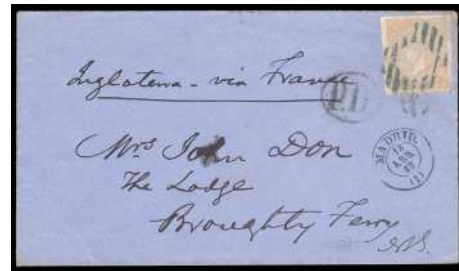 Inglaterra - via France
P.D.
Mrs John Don
MADRID
The Lodge
Broughty Ferry
N.B.